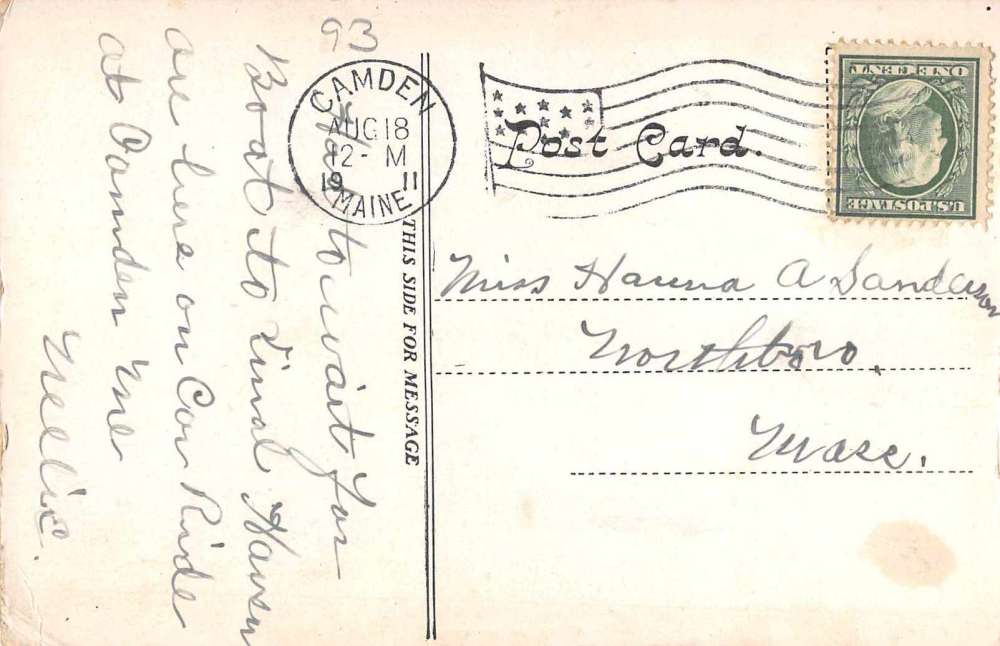 93
Had to wait for
Boat to Vinal Haven
are here on Car Ride
at Camden Me
Nellie.
CAMDEN
AUG 18
12 - M
1911
MAINE
Post Card.
THIS SIDE FOR MESSAGE
U.S. POSTAGE
ONE CENT
Miss Hanna A Sanderson
Northboro,
Mass.